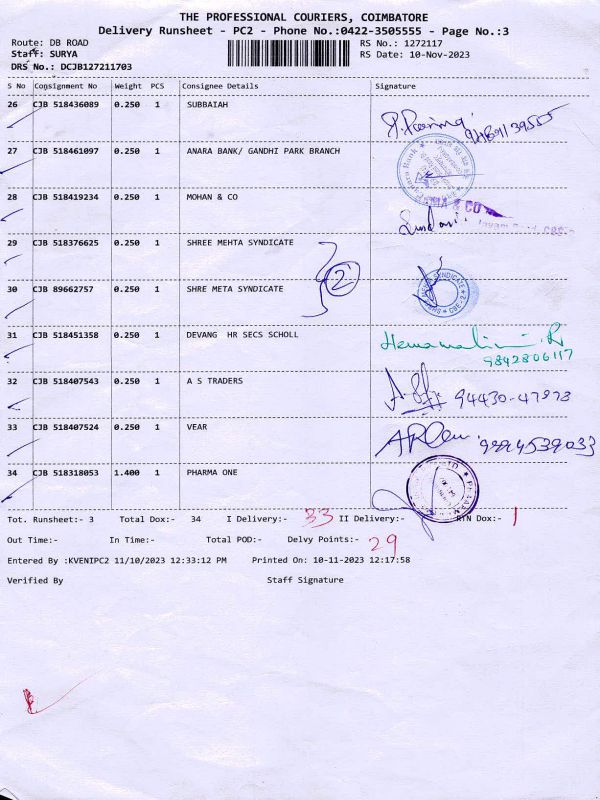 THE PROFESSIONAL COURIERS, COIMBATORE
Delivery Runsheet - PC2 - Phone No.:0422-3505555 - Page No.:3
Route: DB ROAD RS No.: 1272117
Staff: SURYA RS Date: 10-Nov-2023
DRS No.: DCJB127211703
S No Consignment No Weight PCS Consignee Details Signature
26 CJB 518436089 0.250 1 SUBBAIAH
27 CJB 518461097 0.250 1 ANARA BANK/ GANDHI PARK BRANCH
Canara Bank
28 CJB 518419234 0.250 1 MOHAN & CO
& CO
29 CJB 518376625 0.250 1 SHREE MEHTA SYNDICATE
2
30 CJB 89662757 0.250 1 SHRE META SYNDICATE
SYNDICATE CBE-2
31 CJB 518451358 0.250 1 DEVANG HR SECS SCHOLL Hemamalini. R
9842806117
32 CJB 518407543 0.250 1 A S TRADERS 94430-47973
33 CJB 518407524 0.250 1 VEAR 9994539033
34 CJB 518318053 1.400 1 PHARMA ONE
Tot. Runsheet:- 3 Total Dox:- 34 I Delivery:- 33 II Delivery:- RTN Dox:- 1
Out Time:- In Time:- Total POD:- Delvy Points:- 29
Entered By :KVENIPC2 11/10/2023 12:33:12 PM Printed On: 10-11-2023 12:17:58
Verified By Staff Signature